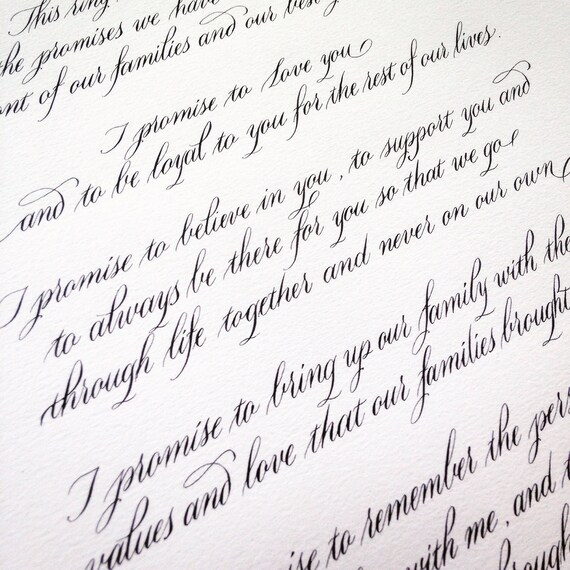 This ring
the promises we have
of our families and our best
I promise to love you
and to be loyal to you for the rest of our lives.
I promise to believe in you, to support you and
to always be there for you so that we go
through life together and never on our own
I promise to bring up our family with the
values and love that our families brought
to remember the
with me, and